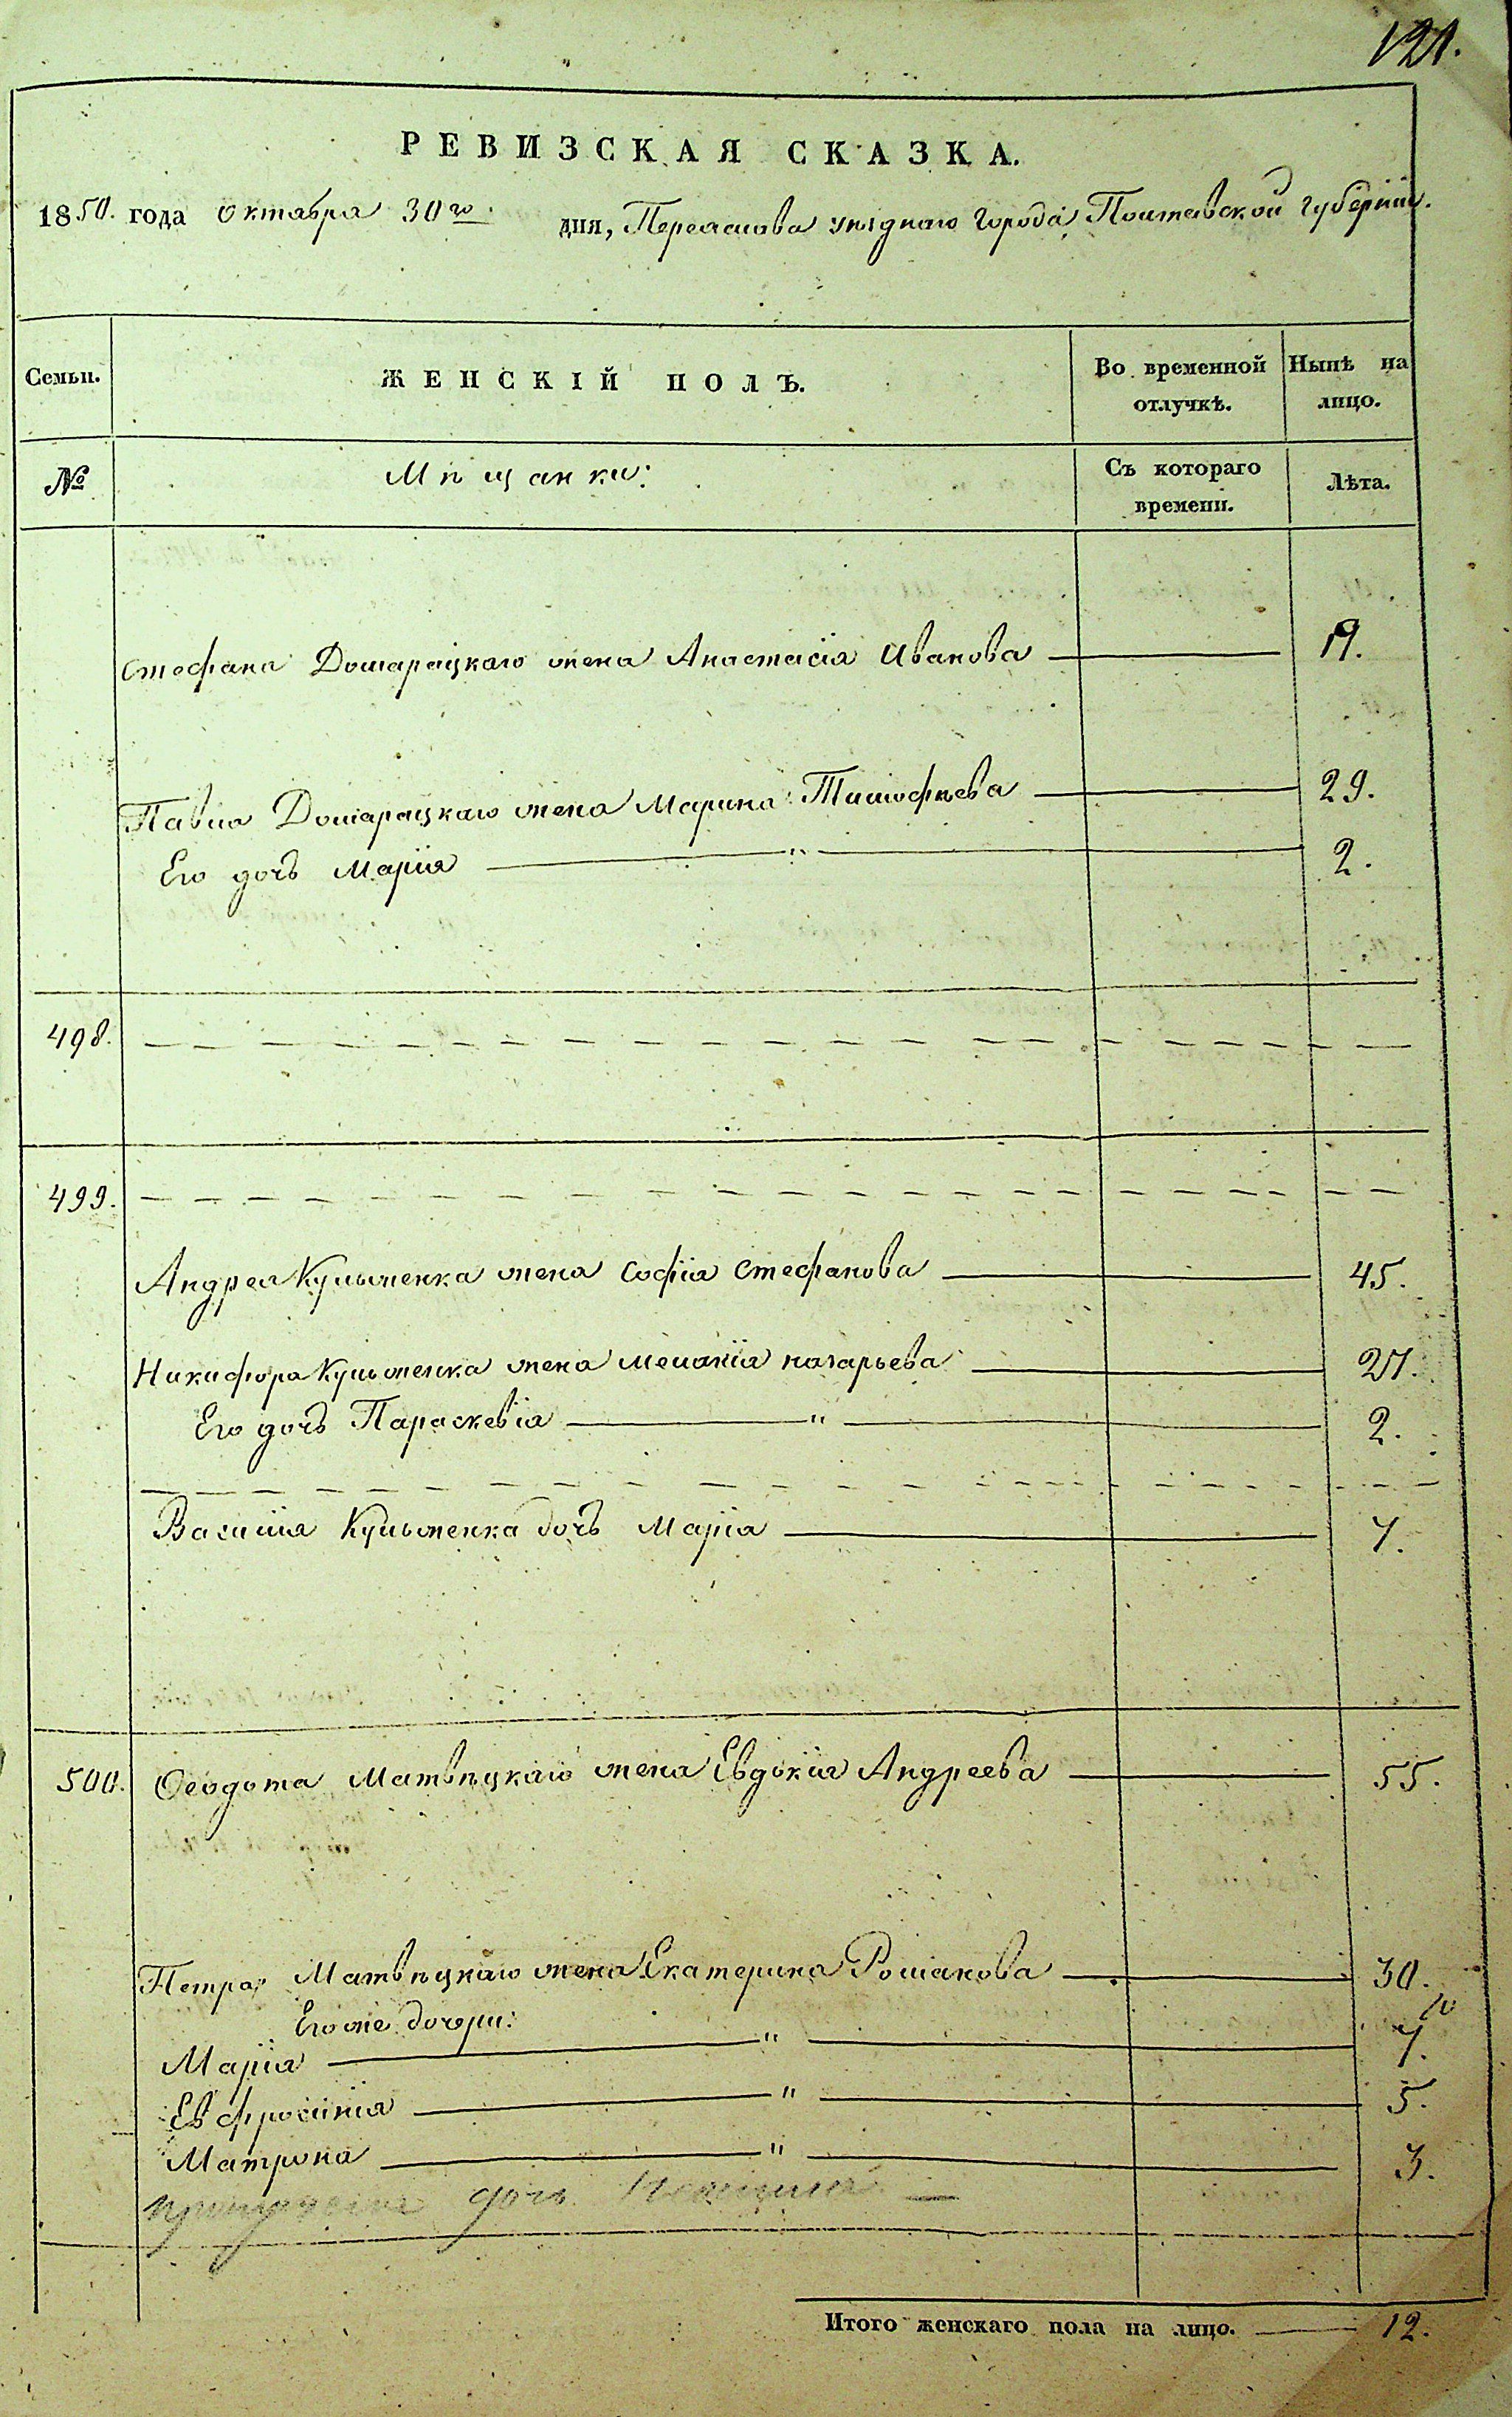 121.
РЕВИЗСКАЯ СКАЗКА.
1850. года октября 30го. дня, Переяслова уѣзднаго города, Полтавской губерніи.
Семьи. ЖЕНСКІЙ ПОЛЪ. Во временной отлучкѣ. Нынѣ на лицо.
№ Мѣщанки: Съ котораго времени. Лѣта.
Стефана Домарацкаго жена Анастасія Иванова — 19.
Павла Домарацкаго жена Марина Тимофѣева — 29.
Его дочь Марія — " — 2.
498. — — —
499. — — —
Андрея Кульженка жена Софія Стефанова — 45.
Никифора Кульженка жена Меланія Назарьева — 27.
Его дочь Параскевія — " — 2.
— — —
Василія Кульженка дочь Марія — 7.
500. Ѳеодота Матвѣцкаго жена Евдокія Андреева — 55.
Петра Матвѣцкаго жена Екатерина Романова — 30.
Его же дочери:
Марія — " — 7.
Евфросинія — " — 5.
Матрона — " — 3.
дочь —
Итого женскаго пола на лицо. — 12.